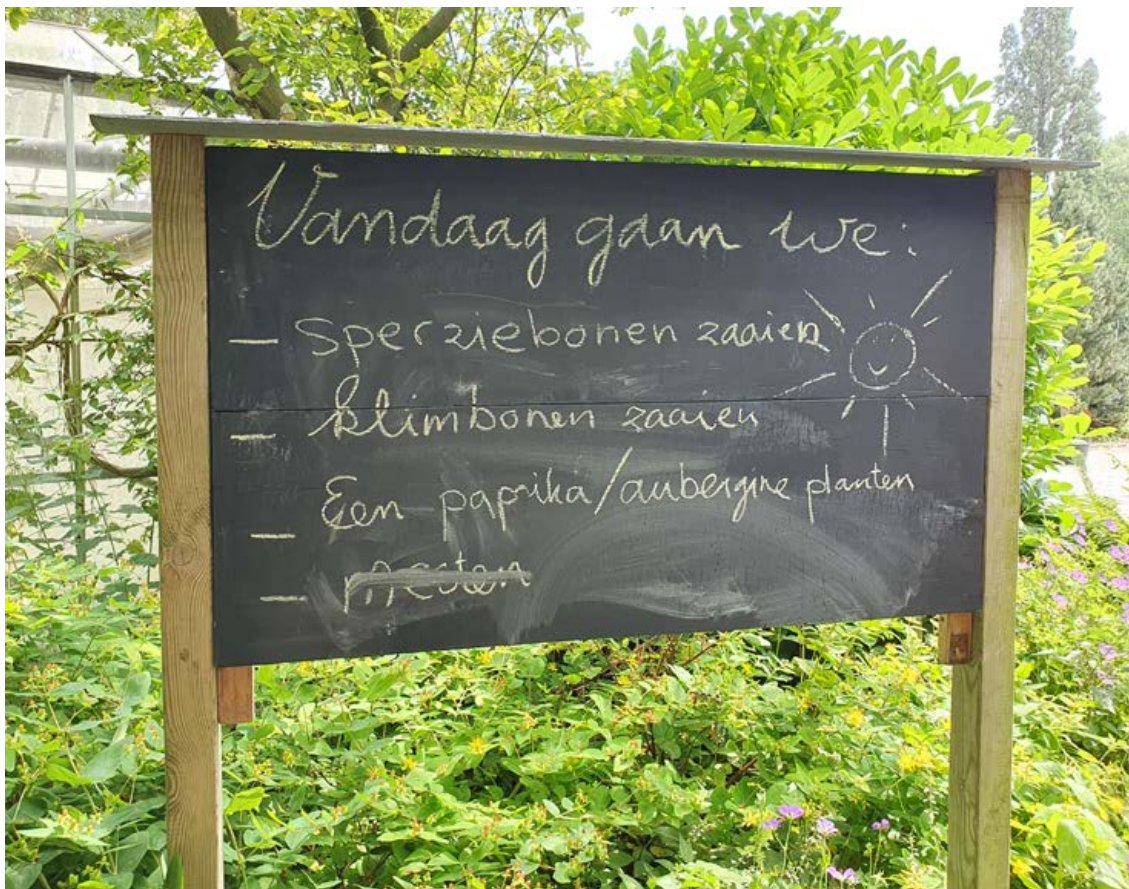 Vandaag gaan we:
- Sperziebonen zaaien
- klimbonen zaaien
- Een paprika/aubergine planten
- mesten